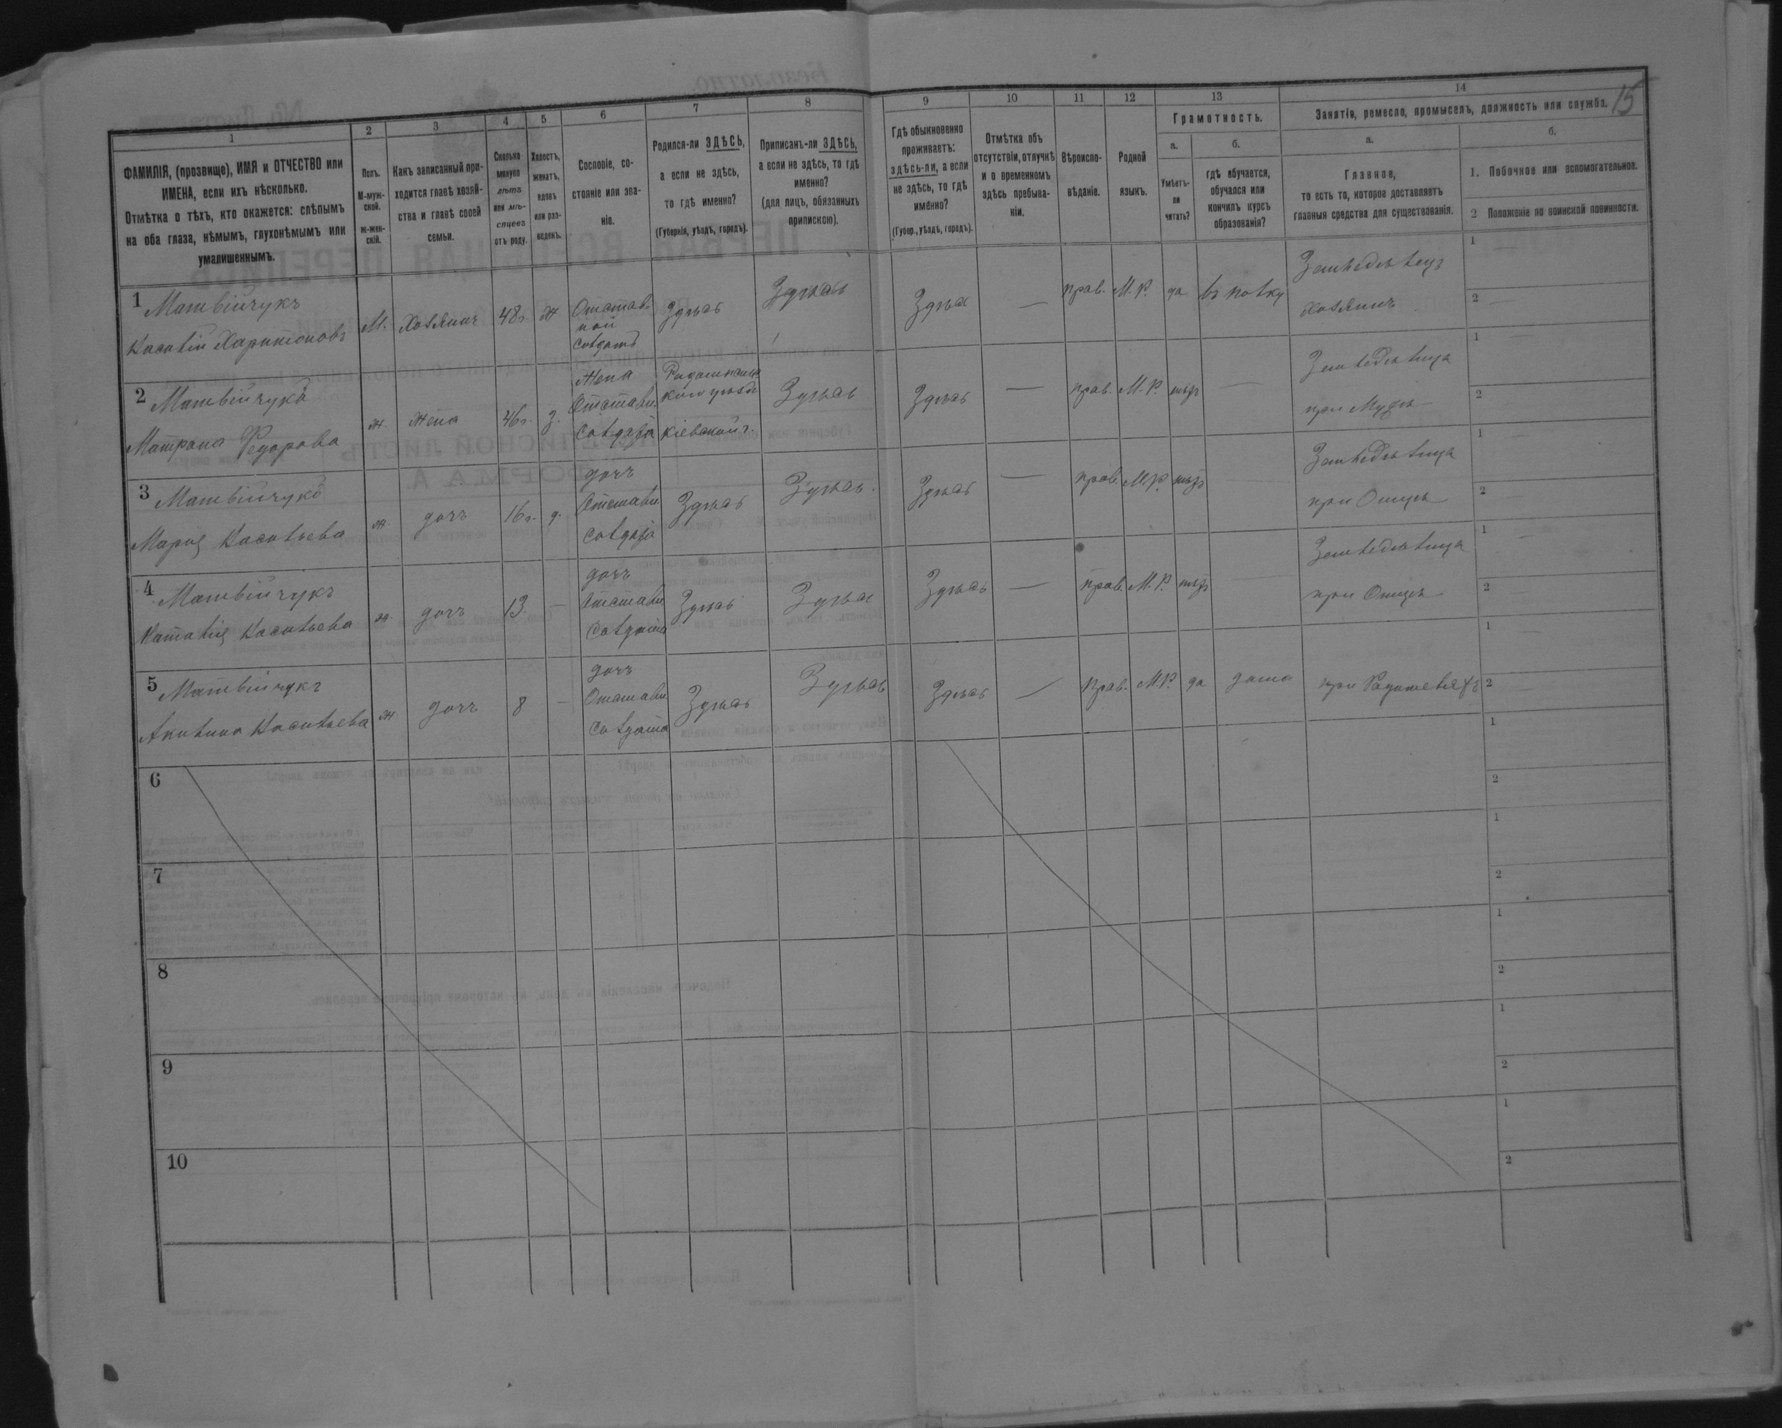 15
1 2 3 4 5 6 7 8 9 10 11 12 13 14
ФАМИЛІЯ, (прозвище), ИМЯ и ОТЧЕСТВО или
ИМЕНА, если ихъ нѣсколько.
Отмѣтка о тѣхъ, кто окажется: слѣпымъ
на оба глаза, нѣмымъ, глухонѣмымъ или
умалишеннымъ.
Полъ.
М-муж-
ской.
ж-жен-
скій.
Какъ записанный при-
ходится главѣ хозяй-
ства и главѣ своей
семьи.
Сколько
минуло
лѣтъ
или мѣ-
сяцевъ
отъ роду.
Холостъ,
женатъ,
вдовъ
или раз-
веденъ.
Сословіе, со-
стояніе или зва-
ніе.
Родился-ли ЗДѢСЬ,
а если не здѣсь,
то гдѣ именно?
(Губернія, уѣздъ, городъ).
Приписанъ-ли ЗДѢСЬ,
а если не здѣсь, то гдѣ
именно?
(для лицъ, обязанныхъ
припискою).
Гдѣ обыкновенно
проживаетъ:
здѣсь-ли, а если
не здѣсь, то гдѣ
именно?
(Губер., уѣздъ, городъ).
Отмѣтка объ
отсутствіи, отлучкѣ
и о временномъ
здѣсь пребыва-
ніи.
Вѣроиспо-
вѣданіе.
Родной
языкъ.
Грамотность.
а.
Умѣетъ-
ли
читать?
б.
гдѣ обучается,
обучался или
кончилъ курсъ
образованія?
Занятіе, ремесло, промыселъ, должность или служба.
а.
Главное,
то есть то, которое доставляетъ
главныя средства для существованія.
б.
1. Побочное или вспомогательное.
2 Положеніе по воинской повинности.
1 Матвійчукъ
Харитоновъ
М.
Хозяинъ
48
ж
Отстав
ной
солдатъ
Здѣсь
Здѣсь
Здѣсь
—
прав.
М. Р.
да
въ полку
Земледѣлецъ
хозяинъ
1
2
2 Матвійчукъ
Матрона Федорова
ж
жена
46
з.
Жена
Отставн.
солдата
уѣзда
Кіевской г.
Здѣсь
Здѣсь
—
прав.
М. Р.
нѣтъ
—
Земледѣлица
при Мужѣ
1
2
3 Матвійчукъ
Марія
ж.
дочь
16
д.
дочь
Отставн
солдата
Здѣсь
Здѣсь.
Здѣсь
—
прав.
М. Р.
нѣтъ
Земледѣлица
при Отцѣ
1
2
4 Матвійчукъ
Наталія
ж.
дочь
13
—
дочь
Отставн
солдата
Здѣсь
Здѣсь
Здѣсь
—
прав.
М. Р.
нѣтъ
Земледѣлица
при Отцѣ
1
2
5 Матвійчукъ
Акилина
ж
дочь
8
—
дочь
Отставн
солдата
Здѣсь
Здѣсь
Здѣсь
—
Прав.
М. Р.
да
дома
при
1
2
6
1
2
7
1
2
8
1
2
9
1
2
10
1
2